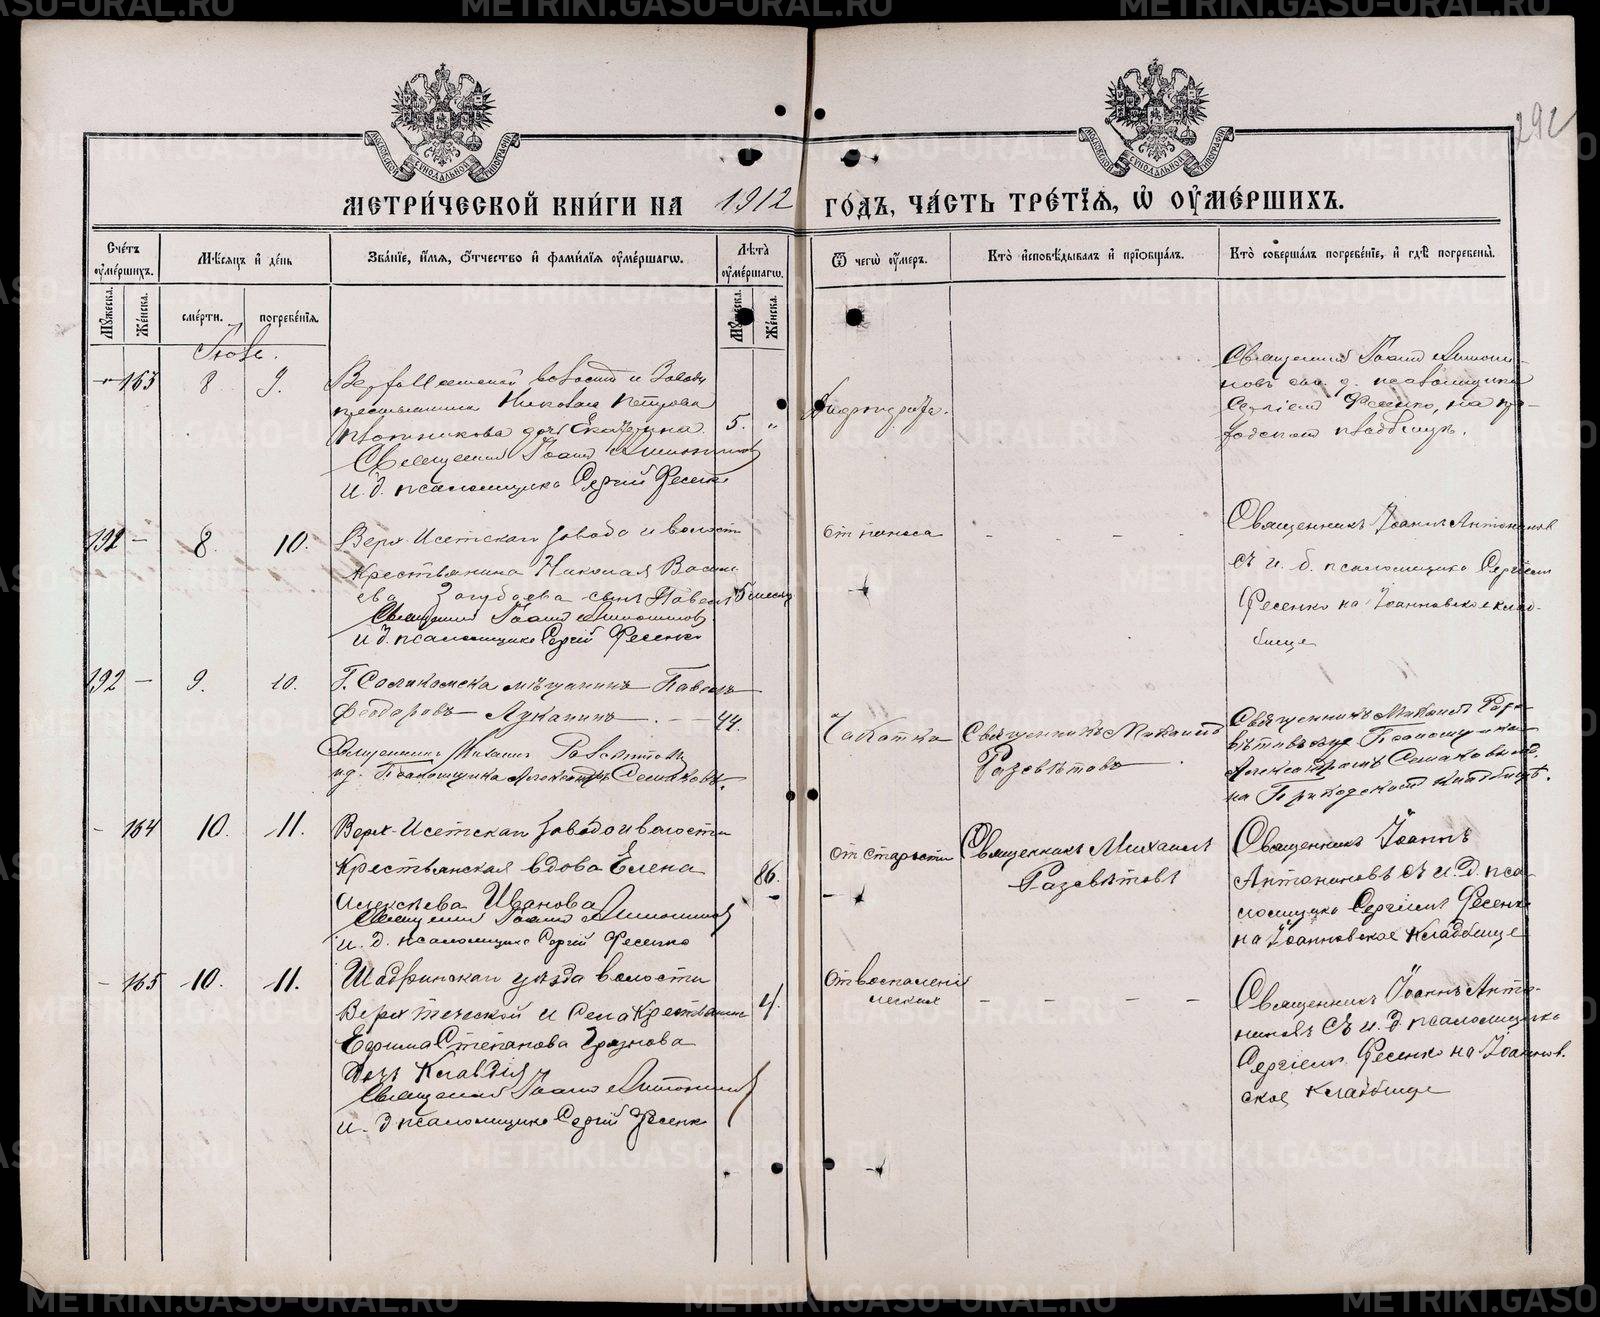 METRIKI.GASO-URAL.RU
292
МЕТРИ́ЧЕСКОЙ КНИ́ГИ НА 1912 ГО́ДЪ, ЧА́СТЬ ТРЕ́ТЇѦ, Ѡ҆ ОУ҆МЕ́РШИХЪ.
Сче́тъ оу҆ме́ршихъ.
Мѣ́сяцъ и҆ де́нь
Зва́нїе, и҆́мя, ѻ҆́тчество и҆ фами́лїя оу҆ме́ршагѡ.
Лѣ́та оу҆ме́ршагѡ.
Ѿ чегѡ̀ оу҆́меръ.
Кто̀ и҆сповѣ́дывалъ и҆ прїѻбща́лъ.
Кто̀ соверша́лъ погребе́нїе, и҆ гдѣ̀ погребены̀.
Мꙋ́жеска.
Же́нска.
сме́рти.
погребе́нїя.
Мꙋ́жеска.
Же́нска.
Іюль.
163 8 9.
Николая Петрова
дочь Екатерина 5.
Священник Іоанн Антонинов
И. д. псаломщика Сергий Фесенко
Священник Іоанн Антони-
нов
Сергіем Фесенко, на
кладбище.
192 — 8. 10.
Верх-Исетскаго завода и волости
крестьянина Николая Васил
ева сын Павел 5 месяц
Священник Іоанн Антонинов
И. д. псаломщика Сергий Фесенко
От поноса
Священникъ Іоаннъ Антонинов
съ и. д. псаломщика Сергіем
Фесенко на Іоанновское клад-
бище
192 — 9. 10.
Г. Соликамска мѣщанинъ Павелъ
Феодоровъ Луканинъ 44.
Священникъ Михаилъ Разсвѣтовъ
ид. Псаломщика Александръ Семаковъ.
Чахотка
Священникъ Михаилъ
Разсвѣтовъ
Священникъ Михаилъ Разс-
вѣтовъ
Александромъ Семаковымъ
на Приходскомъ кладбищѣ.
164 10. 11.
Верх-Исетскаго завода и волости
Крестьянская вдова Елена
Алексѣева Иванова 86.
Священник Іоанн Антонинов
И. д. псаломщика Сергий Фесенко
От старости
Священникъ Михаилъ
Разсвѣтовъ
Священникъ Іоаннъ
Антониновъ съ и. д. пса-
ломщика Сергіем Фесенко
на Іоанновское кладбище
165 10. 11.
Шадринскаго уѣзда волости
Верх-Теченской и села Крестьянина
Ефима Степанова Грязнова
дочь Клавдія 4.
Священник Іоанн Антонинов
И. д. псаломщика Сергий Фесенко
От воспаленія
легких
Священникъ Іоаннъ Анто-
ниновъ съ и. д. псаломщика
Сергіем Фесенко на Іоаннов-
ское кладбище